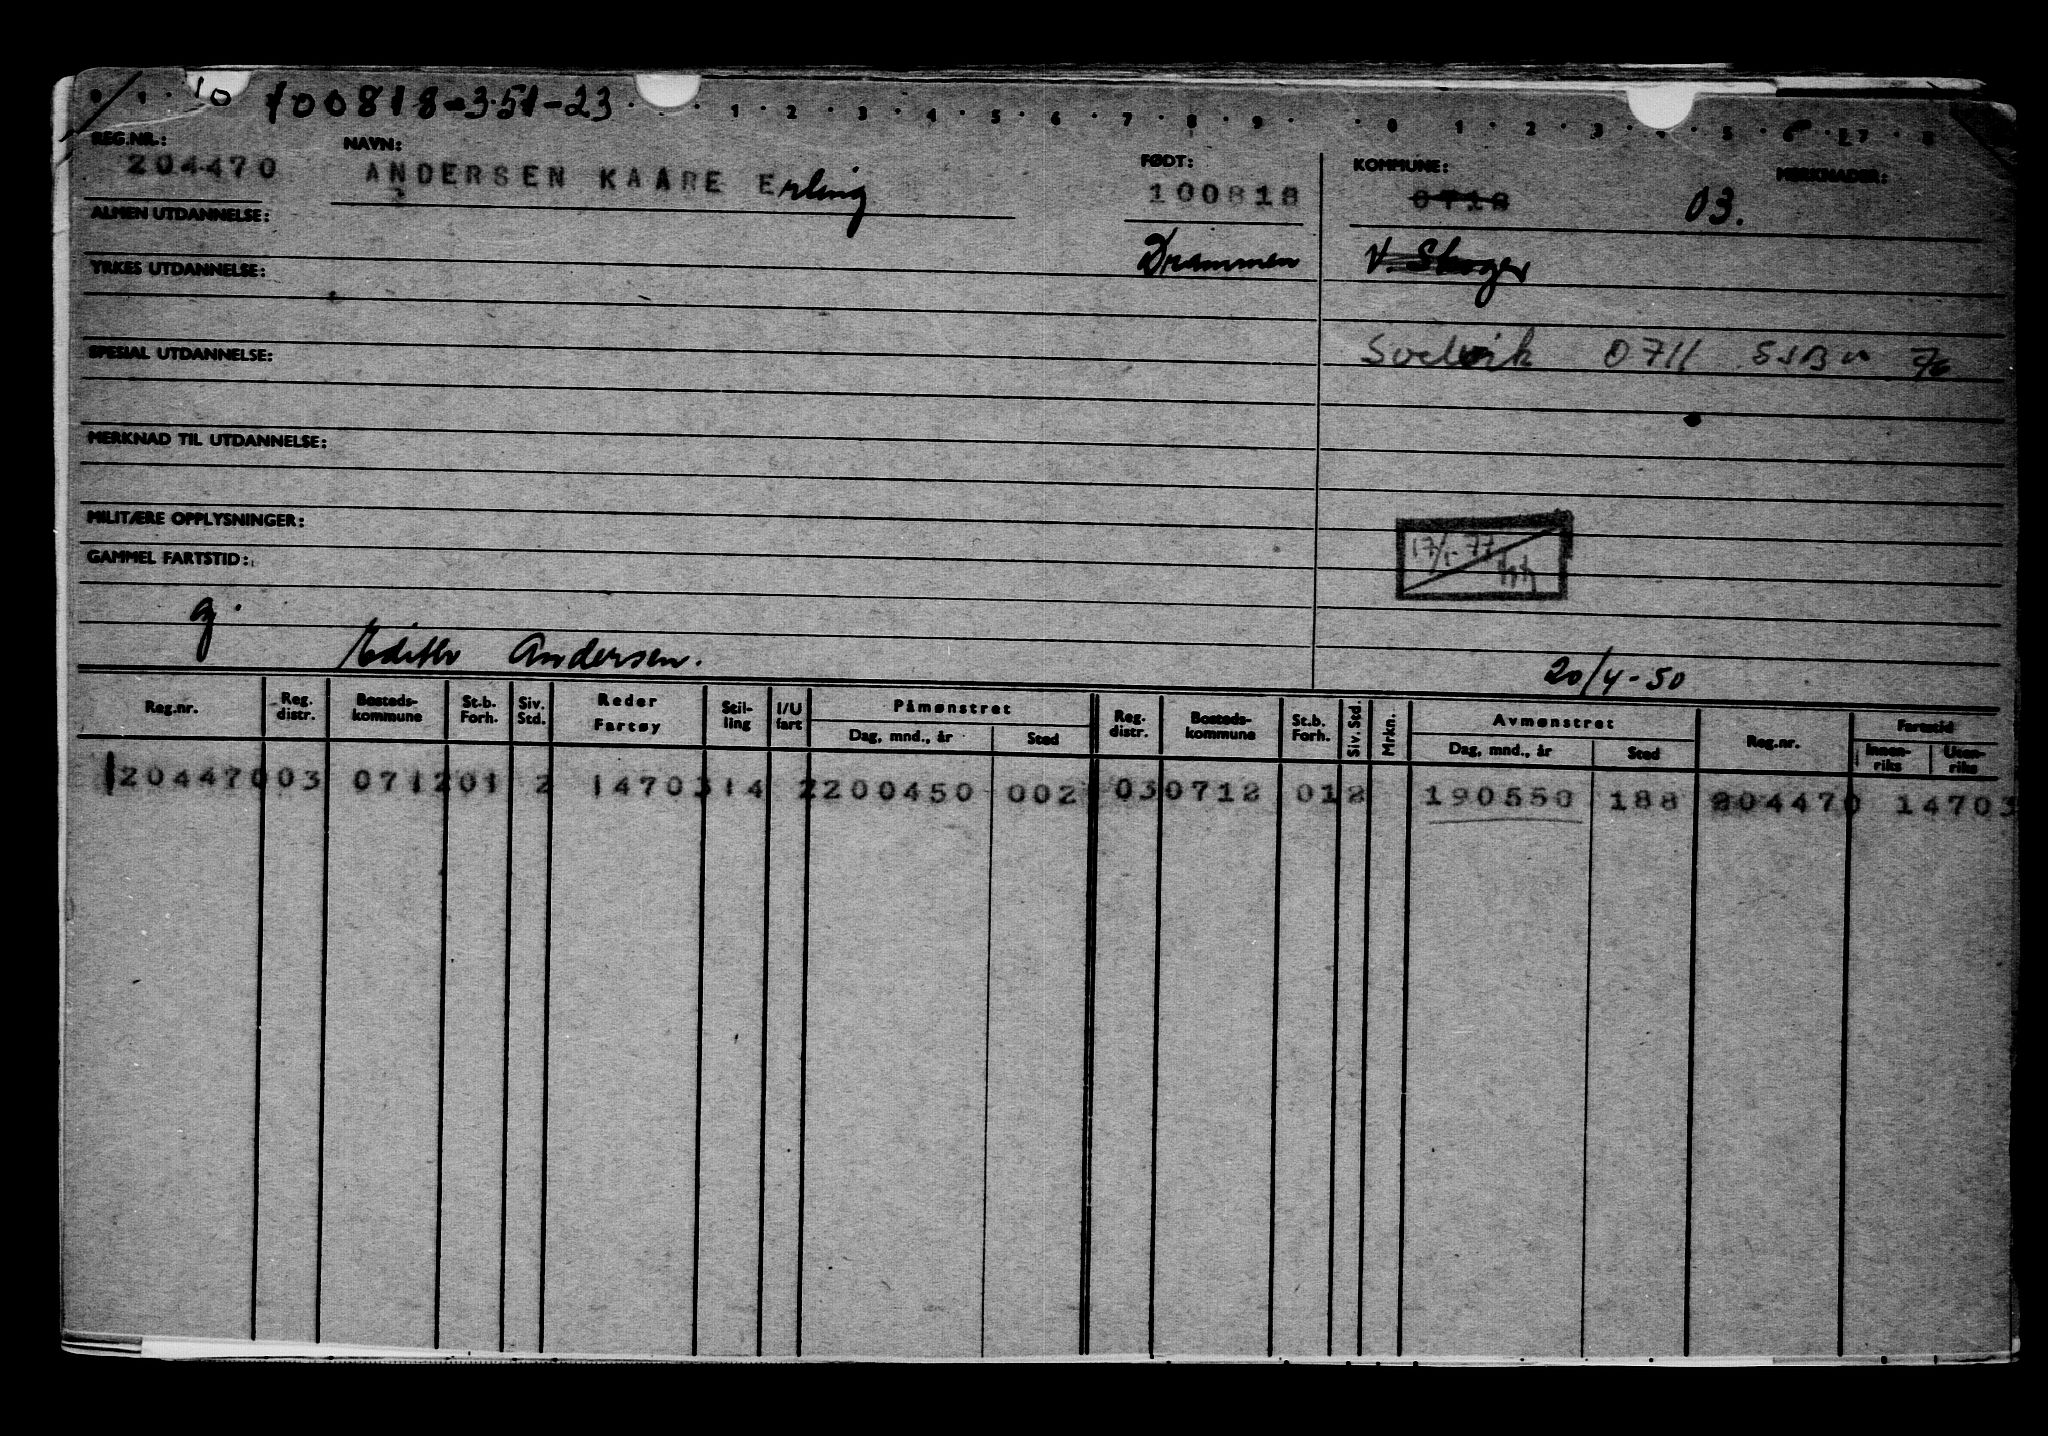 10 100818-351-23
0 1 1 2 3 4 5 6 7 8 9 0 1 2 3 4 5 6 7 8
REG.NR.: NAVN: FØDT: KOMMUNE: MERKNADER:
204470 ANDERSEN KAARE Erling 100818 0712 03.
ALMEN UTDANNELSE:
Drammen V. Skoger
YRKES UTDANNELSE:
SPESIAL UTDANNELSE: Svelvik 0711
MERKNAD TIL UTDANNELSE:
MILITÆRE OPPLYSNINGER:
17/1-77
GAMMEL FARTSTID:
g.
Edith Andersen. 20/4-50
Reg.nr. Reg. distr. Bosteds-kommune St.b. Forh. Siv. Std. Reder Fartøy Stil-ling I/U fart Påmønstret Dag, mnd., år Sted Reg. distr. Bosteds-kommune St.b. Forh. Siv. Std. Mrkn. Avmønstret Dag, mnd., år Sted Reg.nr. Fartstid Innen-riks Uten-riks
204470 03 0712 01 2 14703 14 2 200450 002 03 0712 01 2 190550 188 204470 14703